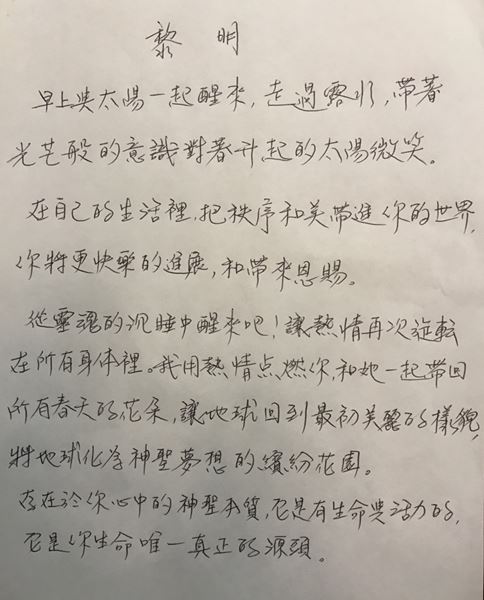 黎明
早上與太陽一起醒來，走過露水，帶著
光芒般的意識對著升起的太陽微笑。
在自己的生活裡，把秩序和美帶進你的世界，
你將更快樂的進展，和帶來恩賜。
從靈魂的沉睡中醒來吧！讓熱情再次逆転
在所有身体裡。我用熱情点燃你，和她一起帶回
所有春天的花朵，讓地球回到最初美麗的樣貌，
將地球化為神聖夢想的繽紛花園。
存在於你心中的神聖本質，它是有生命與活力的，
它是你生命唯一真正的源頭。